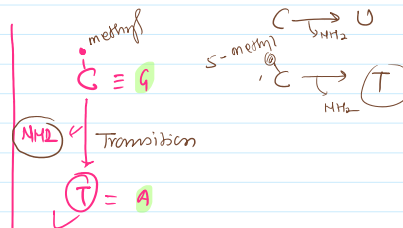 methyl
C ≡ G
NH2
Transition
T = A
C → U
NH2
5-methyl
C → T
NH2